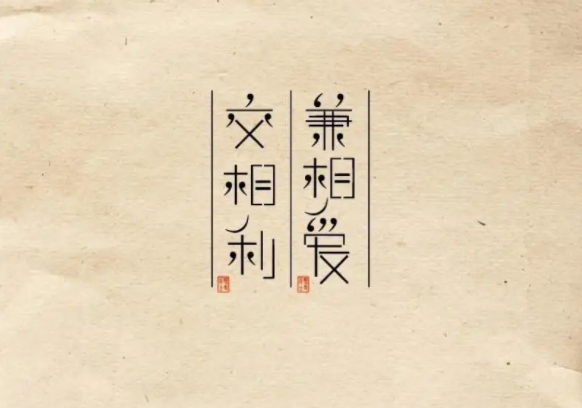 兼相爱
交相利